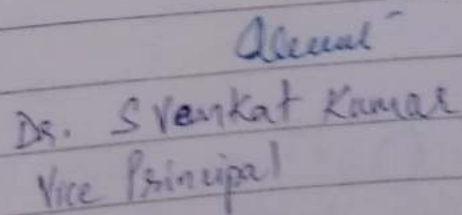 Dr. S Venkat Kumar
Vice Principal